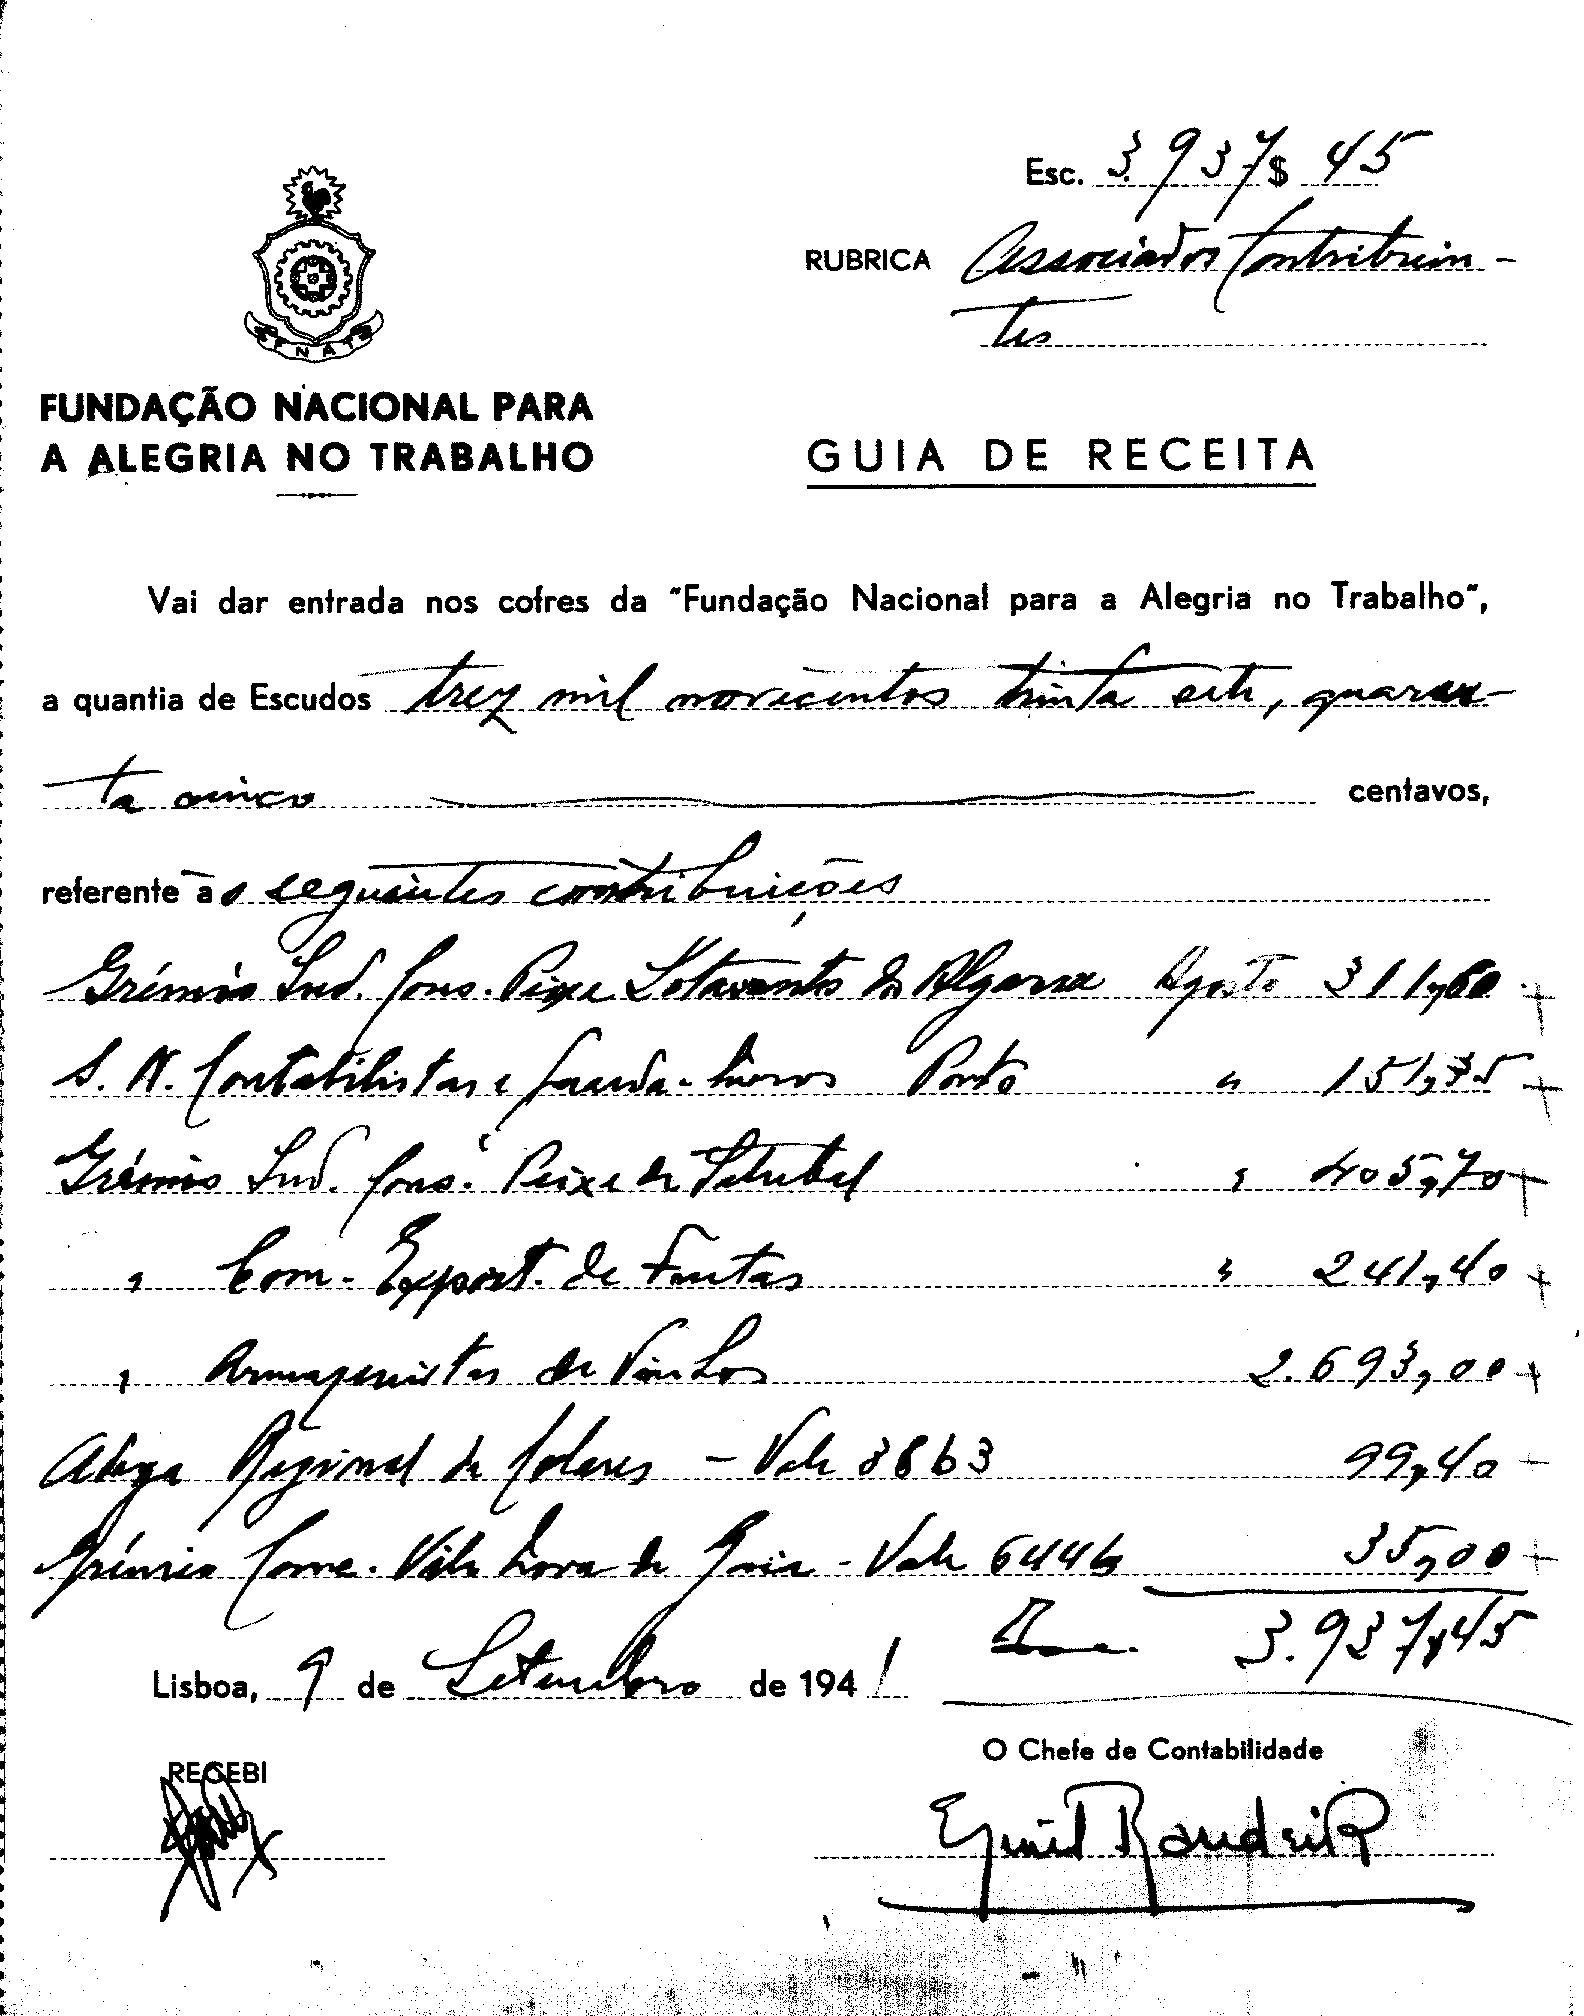 Esc. 3.937$45
RUBRICA Associados Contribuin-
tes
FNAT
FUNDAÇÃO NACIONAL PARA
A ALEGRIA NO TRABALHO
GUIA DE RECEITA
Vai dar entrada nos cofres da "Fundação Nacional para a Alegria no Trabalho",
a quantia de Escudos trez mil novecentos trinta sete, quaren-
ta cinco centavos,
referente às seguintes contribuições
Grémio Ind. Cons. Peixe Sotavento do Algarve Agosto 311,60
S. N. Contabilistas e Guarda-livros Porto " 151,35
Grémio Ind. Cons. Peixe de Setubal " 405,70
" Com. Export. de Frutas " 241,40
" Armazenistas de Vinhos 2.693,00
Adega Regional de Colares - Vale 8863 99,40
Grémio Come. Vila Nova de Gaia - Vale 6446 35,00
3.937,45
Lisboa, 9 de Setembro de 1941
O Chefe de Contabilidade
RECEBI